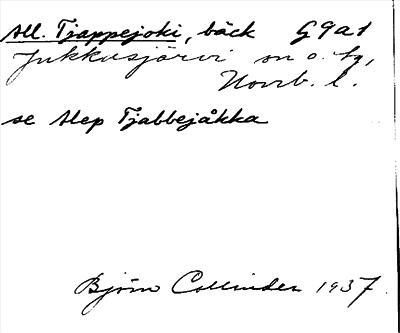 All. Tjappejoki, bäck G9a1
Jukkasjärvi sn o. tg,
Norrb. l.
se Alep Tjabbejåkka
Björn Collinder 1937.